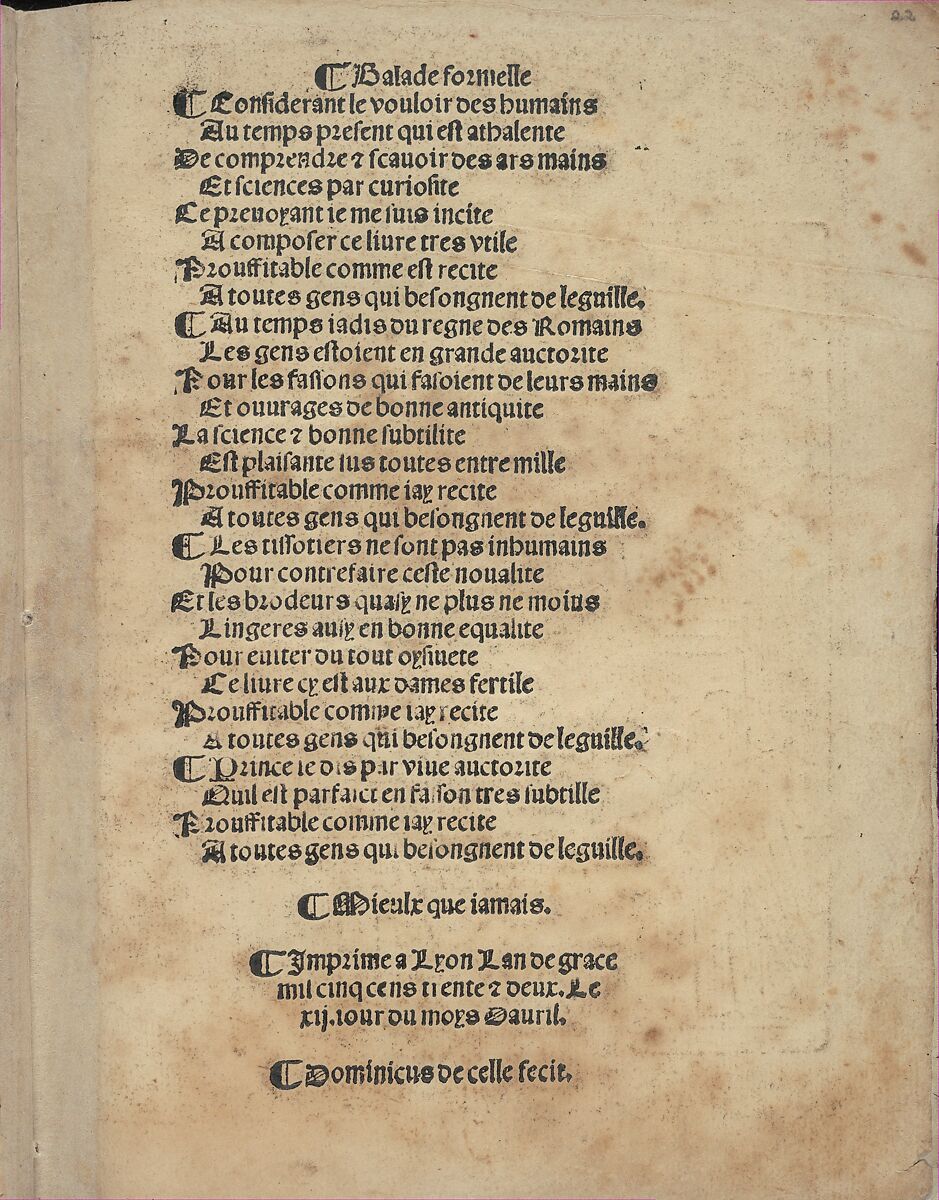 22
¶ Balade formelle
¶ Considerant le vouloir des humains
Au temps present qui est athalente
De comprendre ⁊ scauoir des ars mains
Et sciences par curiosite
Ce preuoyant ie me suis incite
A composer ce liure tres vtile
Prouffitable comme est recite
A toutes gens qui besongnent de leguille.
¶ Au temps iadis du regne des Romains
Les gens estoient en grande auctorite
Pour les fassons qui fasoient de leurs mains
Et ouurages de bonne antiquite
La science ⁊ bonne subtilite
Est plaisante sus toutes entre mille
Prouffitable comme iay recite
A toutes gens qui besongnent de leguille.
¶ Les tissotiers ne sont pas inhumains
Pour contrefaire ceste noualite
Et les brodeurs quasy ne plus ne moins
Lingeres ausy en bonne equalite
Pour euiter du tout oysiuete
Ce liure cy est aux dames fertile
Prouffitable comme iay recite
A toutes gens qui besongnent de leguille.
¶ Prince ie dis par viue auctorite
Quil est parfaict en faison tres subtille
Prouffitable comme iay recite
A toutes gens qui besongnent de leguille.
¶ Mieulx que iamais.
¶ Imprime a Lyon Lan de grace
mil cinq cens trente ⁊ deux. Le
xij. iour du moys Dauril.
¶ Dominicus de celle fecit.